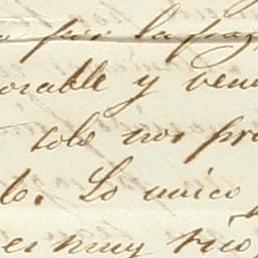 por la fra
orable y ven
solo nos pro
to. Lo unico
es muy rico